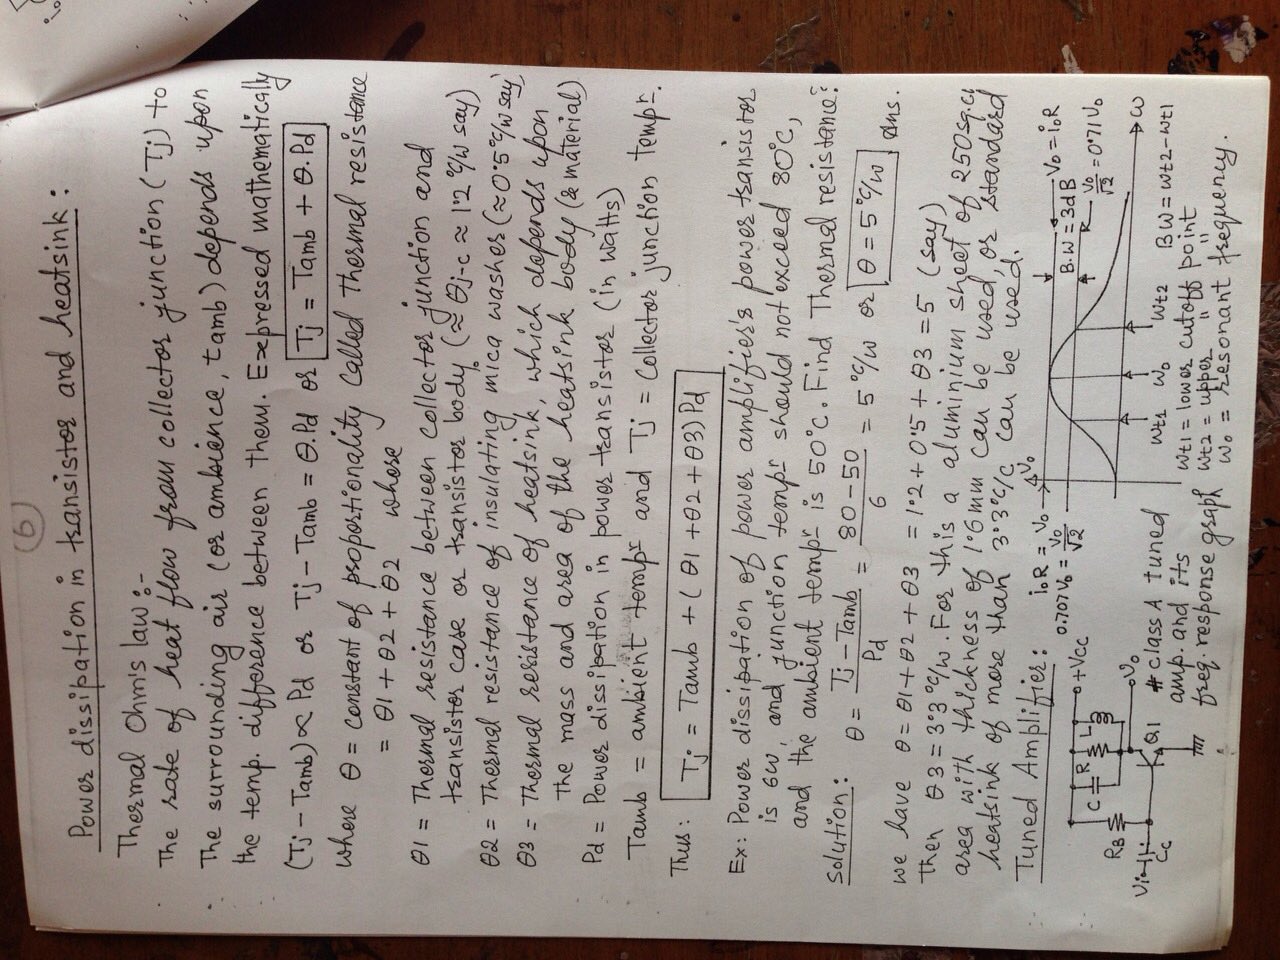 (6)
Power dissipation in transistor and heatsink:
Thermal Ohm's law:-
The rate of heat flow from collector junction (Tj) to
the surrounding air (or ambience, tamb) depends upon
the temp. difference between them. Expressed mathematically
(Tj - Tamb) ∝ Pd or Tj - Tamb = θ.Pd or Tj = Tamb + θ.Pd
where θ = constant of proportionality called thermal resistance
= θ1 + θ2 + θ2 where
θ1 = Thermal resistance between collector junction and
transistor case or transistor body (≈ θj-c ≈ 1.2 °c/w say)
θ2 = Thermal resistance of insulating mica washer (≈ 0.5°c/w say)
θ3 = Thermal resistance of heatsink, which depends upon
the mass and area of the heatsink body (& material)
Pd = Power dissipation in power transistor (in watts)
Tamb = ambient tempr and Tj = collector junction tempr.
Thus: Tj = Tamb + (θ1 + θ2 + θ3) Pd
Ex: Power dissipation of power amplifier's power transistor
is 6w, and junction tempr should not exceed 80°c,
and the ambient tempr is 50°c. Find Thermal resistance?
Solution: θ = Tj - Tamb / Pd = 80 - 50 / 6 = 5°c/w or θ = 5°c/w Ans.
we have θ = θ1 + θ2 + θ3 = 1.2 + 0.5 + θ3 = 5 (say)
then θ3 = 3.3°c/w. For this a aluminium sheet of 250sq.cm
area with thickness of 1.6mm can be used, or standard
heatsink of more than 3.3°c/c can be used.
Tuned Amplifier:
+Vcc
RB
C
R
L
Vi
Cc
Q1
Vo
# class A tuned
amp. and its
freq. response graph
ioR = Vo
0.707Vo = Vo/√2
Vo
Vo = ioR
B.W = 3dB
Vo/√2 = 0.71Vo
ω
ωt1
ωo
ωt2
BW = ωt2 - ωt1
ωt1 = lower cutoff point
ωt2 = upper " "
ωo = resonant frequency.